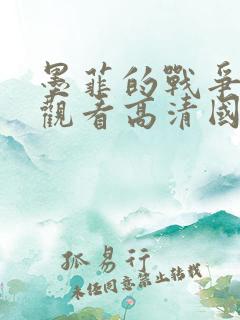 墨菲的戰爭
觀看高清國
孤易行
未经同意禁止转载